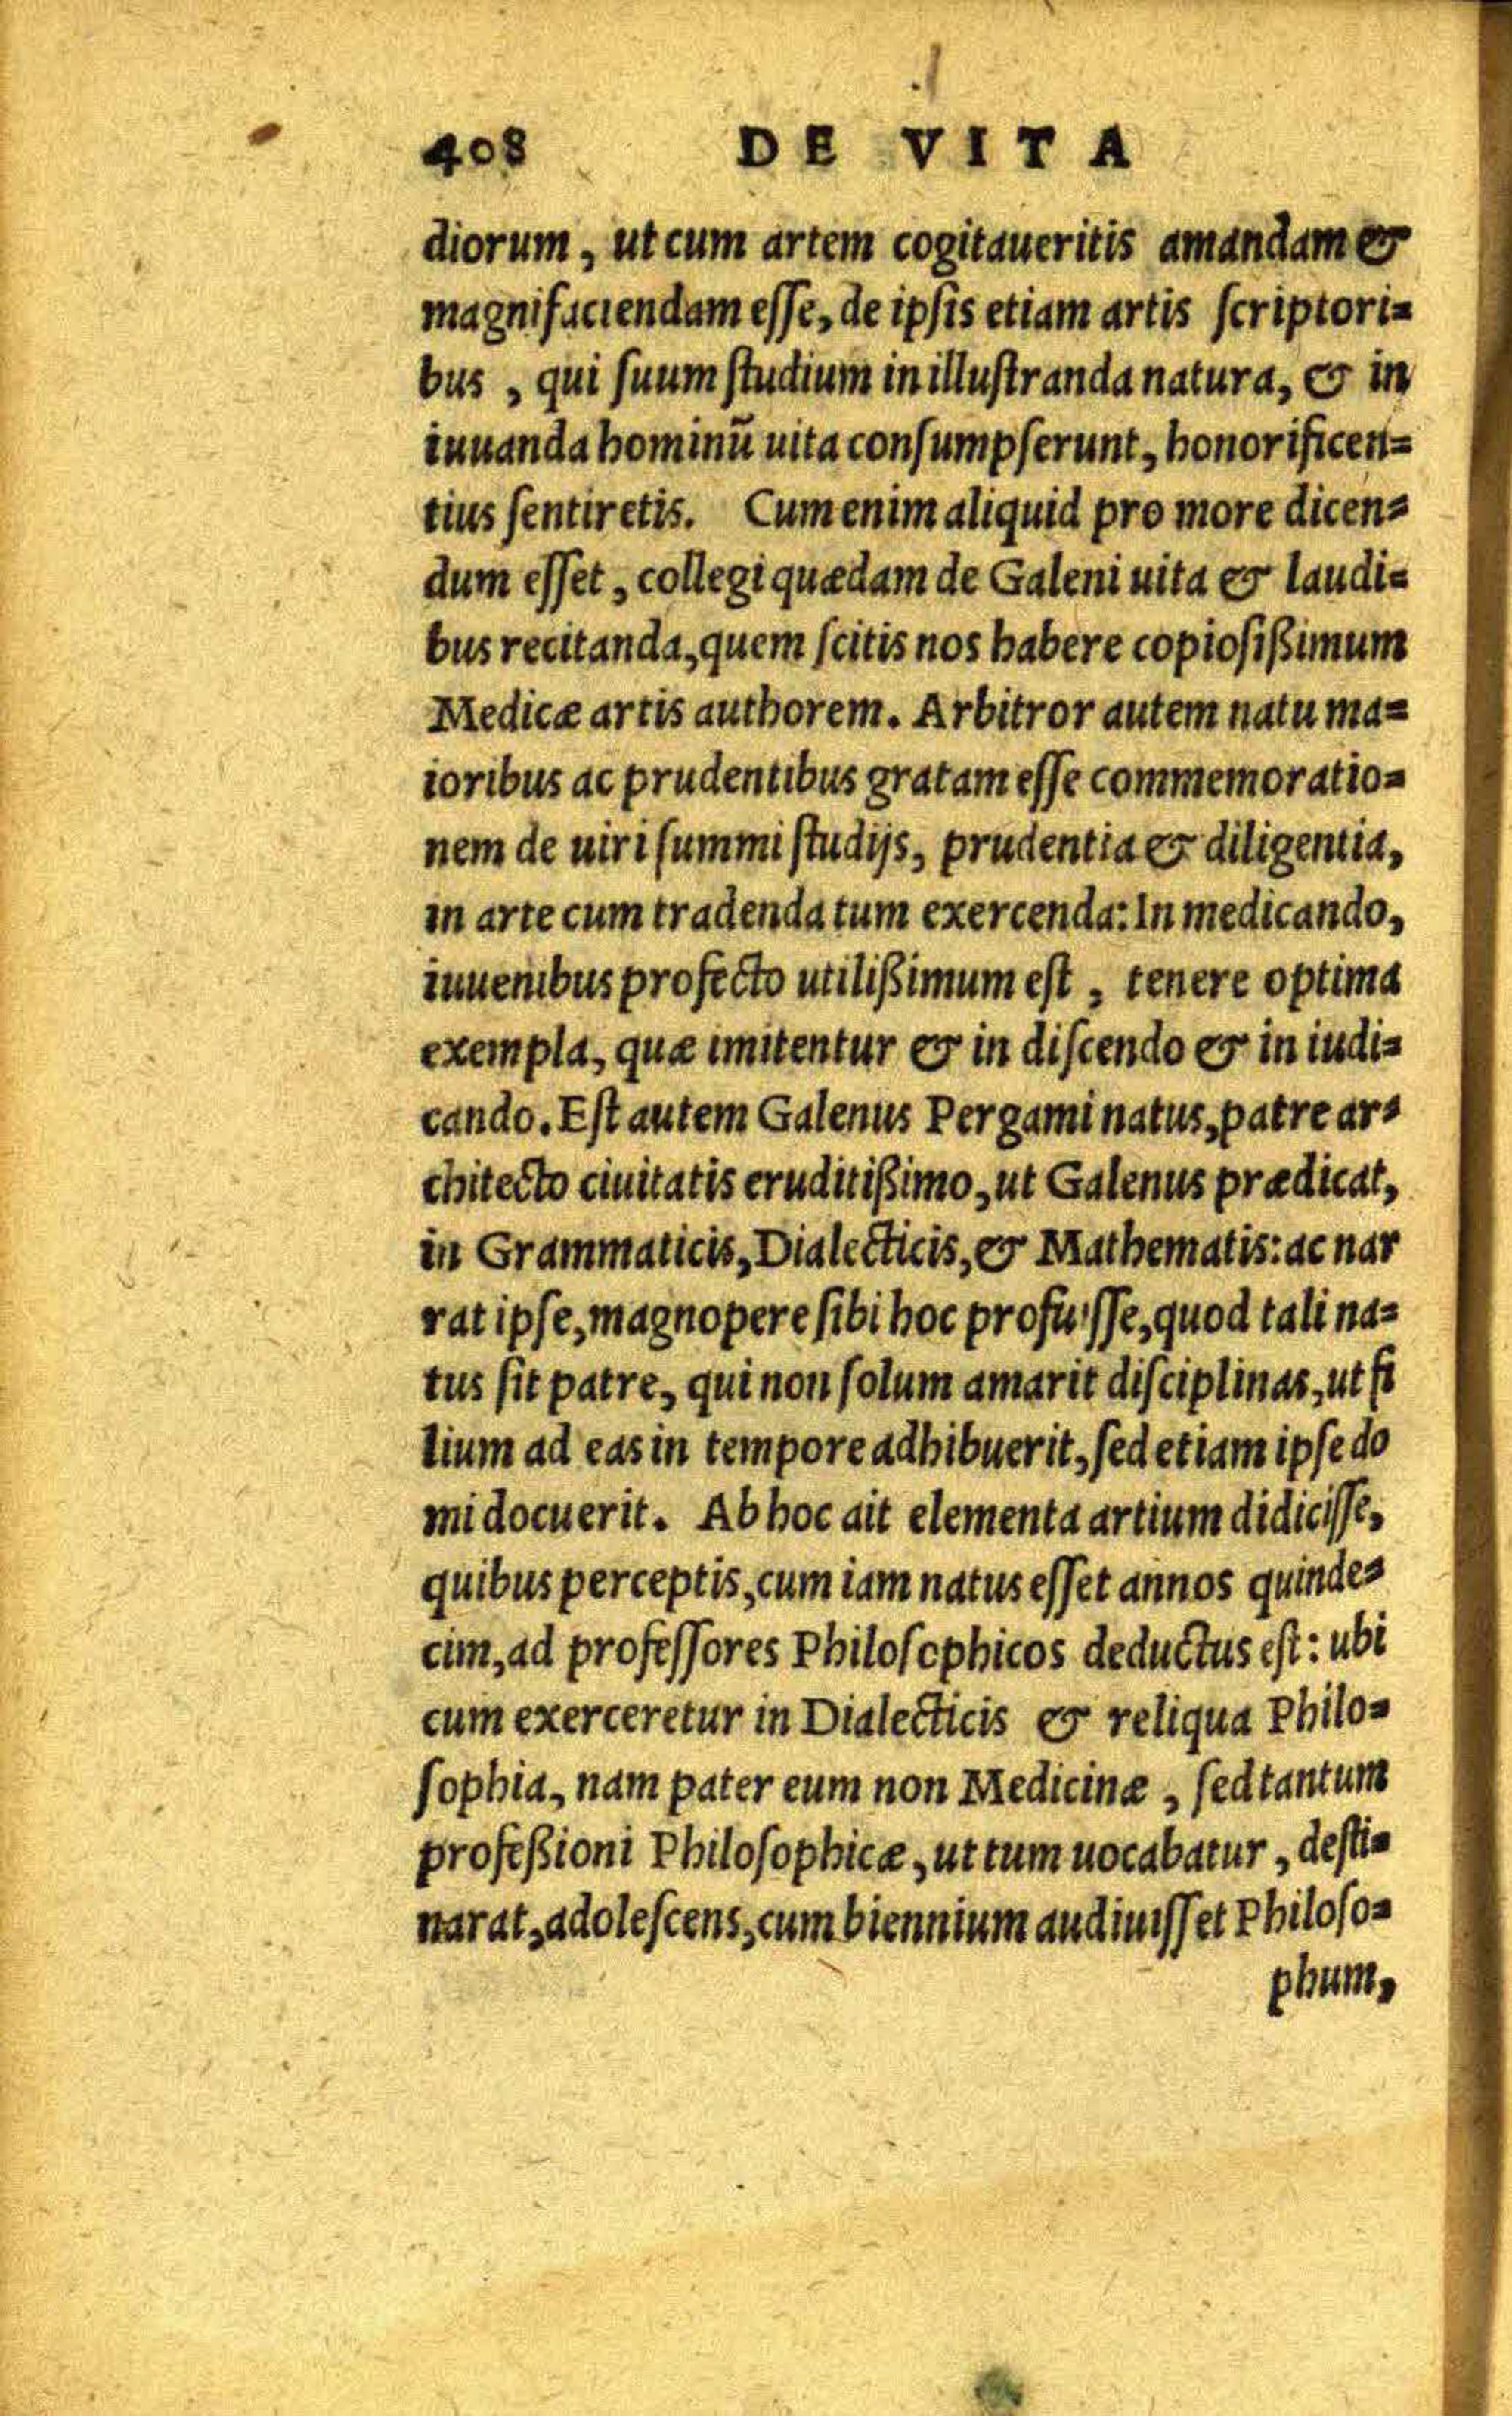 408 DE VITA
diorum, ut cum artem cogitaueritis amandam &
magnifaciendam esse, de ipsis etiam artis scriptori=
bus, qui suum studium in illustranda natura, & in
iuuanda hominū uita consumpserunt, honorificen=
tius sentiretis. Cum enim aliquid pro more dicen=
dum esset, collegi quædam de Galeni uita & laudi=
bus recitanda, quem scitis nos habere copiosißimum
Medicæ artis authorem. Arbitror autem natu ma=
ioribus ac prudentibus gratam esse commemoratio=
nem de uiri summi studijs, prudentia & diligentia,
in arte cum tradenda tum exercenda: In medicando,
iuuenibus profecto utilißimum est, tenere optima
exempla, quæ imitentur & in discendo & in iudi=
cando. Est autem Galenus Pergami natus, patre ar=
chitecto ciuitatis eruditißimo, ut Galenus prædicat,
in Grammaticis, Dialecticis, & Mathematis: ac nar
rat ipse, magnopere sibi hoc profuisse, quod tali na=
tus sit patre, qui non solum amarit disciplinas, ut fi
lium ad eas in tempore adhibuerit, sed etiam ipse do
mi docuerit. Ab hoc ait elementa artium didicisse,
quibus perceptis, cum iam natus esset annos quinde=
cim, ad professores Philosophicos deductus est: ubi
cum exerceretur in Dialecticis & reliqua Philo=
sophia, nam pater eum non Medicinæ, sed tantum
profeßioni Philosophicæ, ut tum uocabatur, desti=
narat, adolescens, cum biennium audiuisset Philoso=
phum,